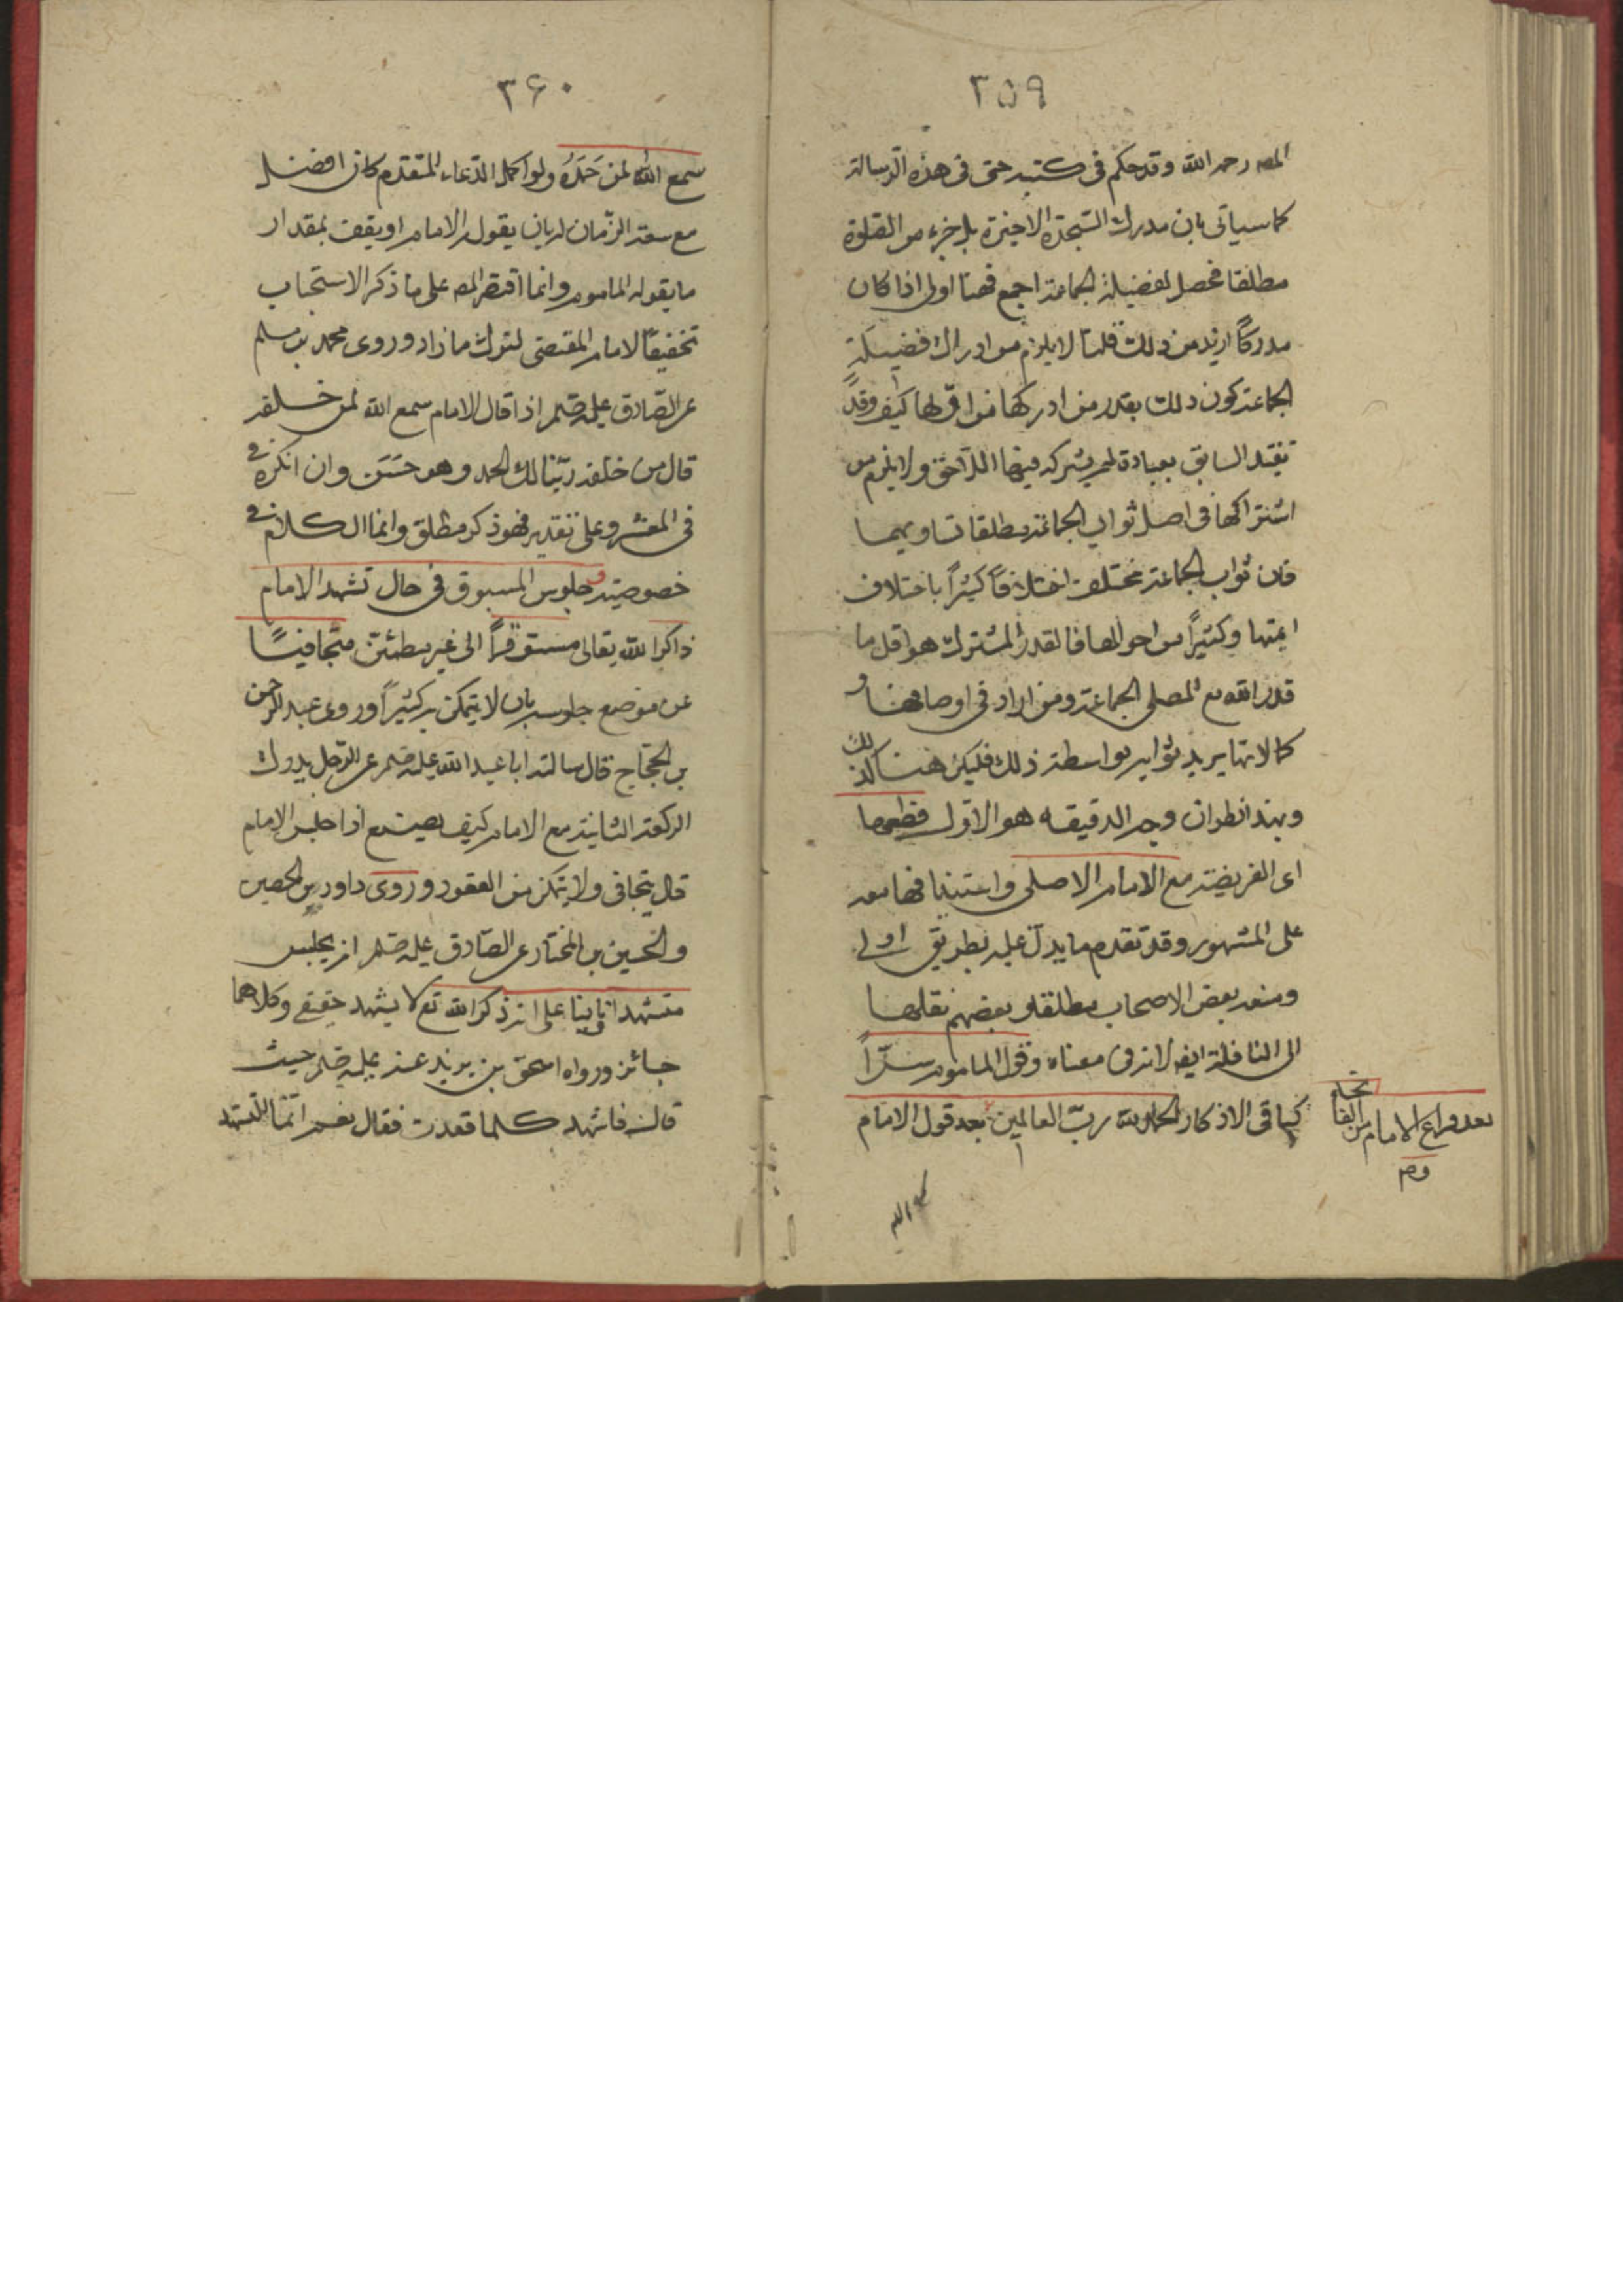 ٣٥٩
المصه رحمه الله وقد حكم فى كتبه حتى فى هذه الرسالة
كما سياتى بان مدرك السجدة الاخيرة بل جزء من الصلوة
مطلقا محصل لفضيلة الجماعة اجمع فهنا اولى اذا كان
مدركا ازيد من ذلك قلنا لا يلزم من ادراك فضيلة
الجماعة كون ذلك بقدر من ادركها من اولها كيف وقد
تعبد السابق بعبادة لم يشركه فيها اللاحق ولا يلزم من
اشتراكها فى اصل ثواب الجماعة مطلقا تساويهما
فان ثواب الجماعة مختلف اختلافا كثيرا باختلاف
ائمتها وكثيرا من احوالها فالقدر المشترك هو اقل ما
قدر الله مع المصلى الجماعة ومن ازاد فى اوصافها و
كمالاتها يزيد ثوابه بواسطة ذلك فليكن هنا كذلك
وبهذا نظر ان وجه الدقيقه هو الاول قطعها
اى الفريضة مع الامام الاصلى واستينافها معه
على المشهور وقد تقدم ما يدل عليه بطريق اولى
ومنعه بعض الاصحاب مطلقا وبعضهم نقلها
الى النافلة ايضا لانه فى معناه وقول الماموم سرا
كباقى الاذكار الحمد لله رب العالمين بعد قول الامام
بعد فراغ الامام من الفاتحة
وم
سمع الله
٣۶٠
سمع الله لمن حمده ولو اكمل الدعاء المتقدم كان افضل
مع سعة الزمان له بان يقوله الامام او يقف بمقدار
ما يقوله الماموم وانما اقتصر المصه على ما ذكر الاستحباب
تخفيفا لامام المقتضى لترك ما زاد وروى محمد بن مسلم
عن الصادق عليه صلم اذا قال الامام سمع الله لمن خلفه
قال من خلفه ربنا لك الحمد وهو حسن وان انكره
فى المعتبر وعلى تقديره فهو ذكر مطلق وانما الكلام فى
خصوصيته وجلوس المسبوق فى حال تشهد الامام
ذاكرا لله تعالى مستوفزا الى غير مطمئن متجافيا
عن موضع جلوسه بان لا يتمكن به كثيرا وروى عبد الرحمن
بن الحجاج قال سالت ابا عبد الله عليه صلم عن الرجل يدرك
الركعة الثانية مع الامام كيف يصنع اذا جلس الامام
قال يتجافى ولا يتمكن من القعود وروى داود بن الحصين
والحسين بن المختار عن الصادق عليه صلم انه يجلس
متشهدا ثانيا بنا على انه ذكر الله تع لا يشهد حقيقى وكلاهما
جائز ورواه اسحق بن يزيد عنه عليه صلم حيث
قال له فاتشهد كلما قعدت فقال نعم انما التشهد